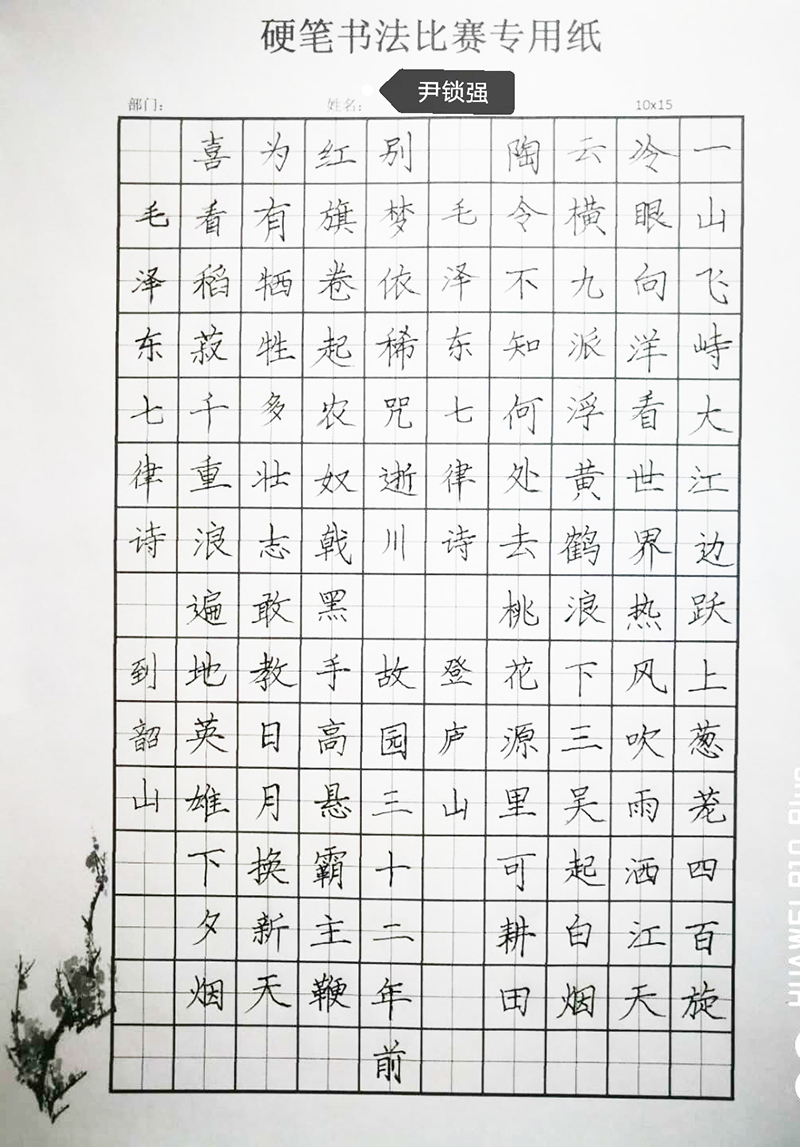 硬笔书法比赛专用纸
部门： 姓名： 尹锁强 10x15
一山飞峙大江边跃上葱茏四百旋
冷眼向洋看世界热风吹雨洒江天
云横九派浮黄鹤浪下三吴起白烟
陶令不知何处去桃花源里可耕田
毛泽东七律诗 登庐山
别梦依稀咒逝川 故园三十二年前
红旗卷起农奴戟黑手高悬霸主鞭
为有牺牲多壮志敢教日月换新天
喜看稻菽千重浪遍地英雄下夕烟
毛泽东七律诗 到韶山
HUAWEI P10 Plus